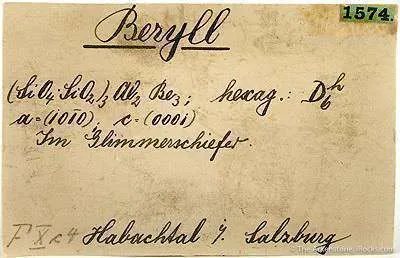 1574.
Beryll
(SiO₄ SiO₂)₃ Al₂ Be₃; hexag.: D₆ʰ
a=(101̄0), c=(0001)
Im Glimmerschiefer.
F X c4 Habachtal i/ Salzburg